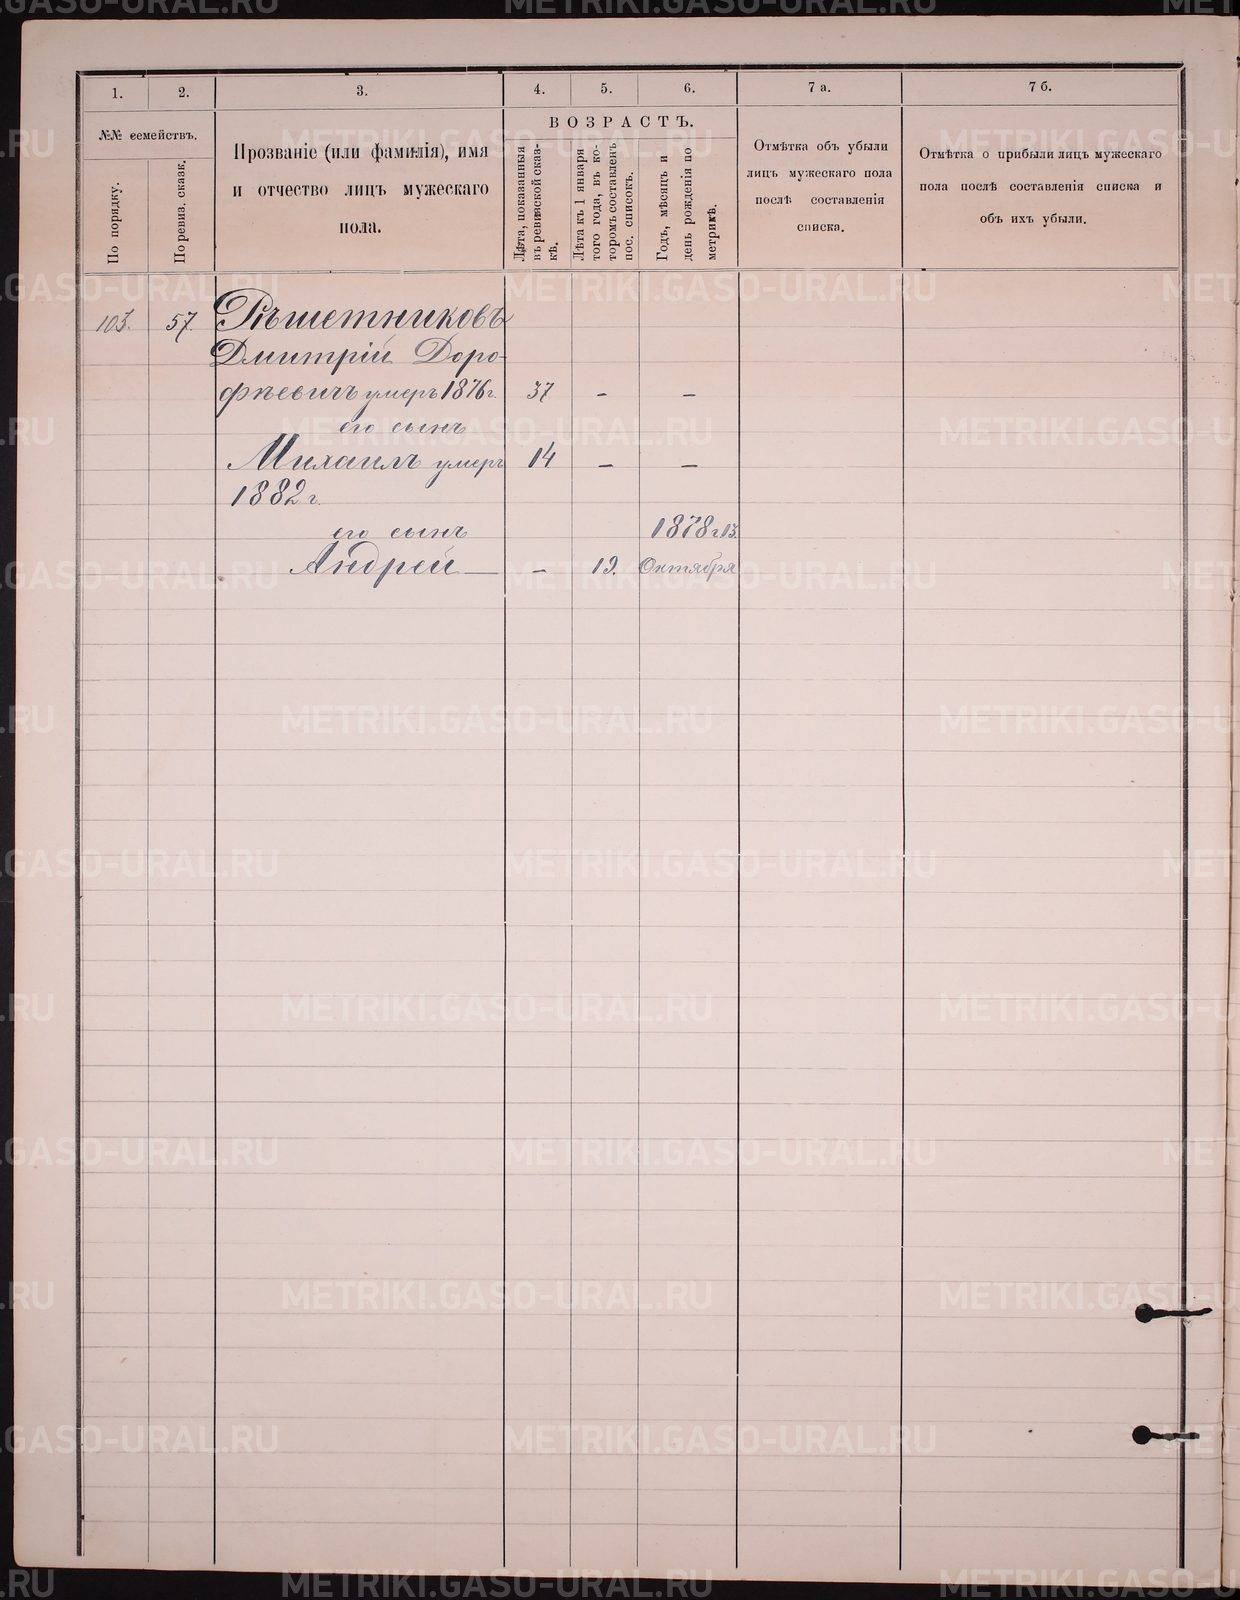 1.
2.
3.
4.
5.
6.
7 а.
7 б.
№№ семействъ.
По порядку.
По ревиз. сказк.
Прозваніе (или фамилія), имя
и отчество лицъ мужескаго
пола.
ВОЗРАСТЪ.
Лѣта, показанныя
въ ревизской сказ-
кѣ.
Лѣта къ 1 января
того года, въ ко-
торомъ составленъ
пос. списокъ.
Годъ, мѣсяцъ и
день рожденія по
метрикѣ.
Отмѣтка объ убыли
лицъ мужескаго пола
послѣ составленія
списка.
Отмѣтка о прибыли лицъ мужескаго
пола послѣ составленія списка и
объ ихъ убыли.
103. 57. Рѣшетниковъ
Дмитрій Доро-
фѣевичъ умеръ 1876 г. 37 – –
его сынъ
Михаилъ умеръ 14 – –
1882 г.
его сынъ 1878 г. 13.
Андрей — – 19. Октября
METRIKI.GASO-URAL.RU